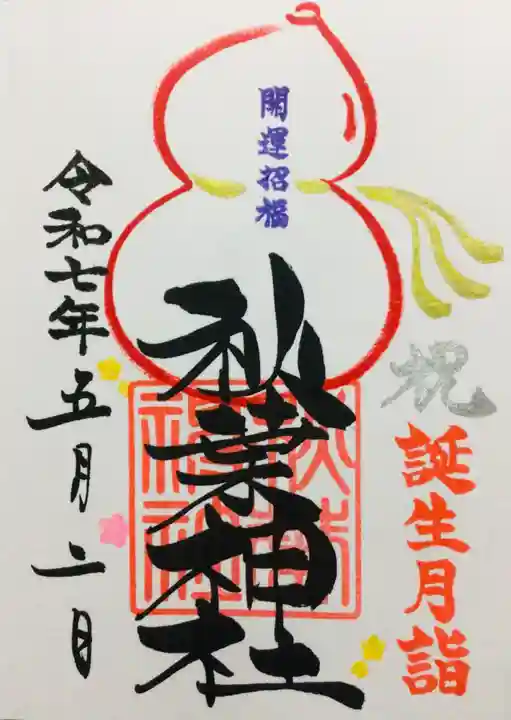 開運招福
祝
誕生月詣
秋葉神社
令和七年五月二日